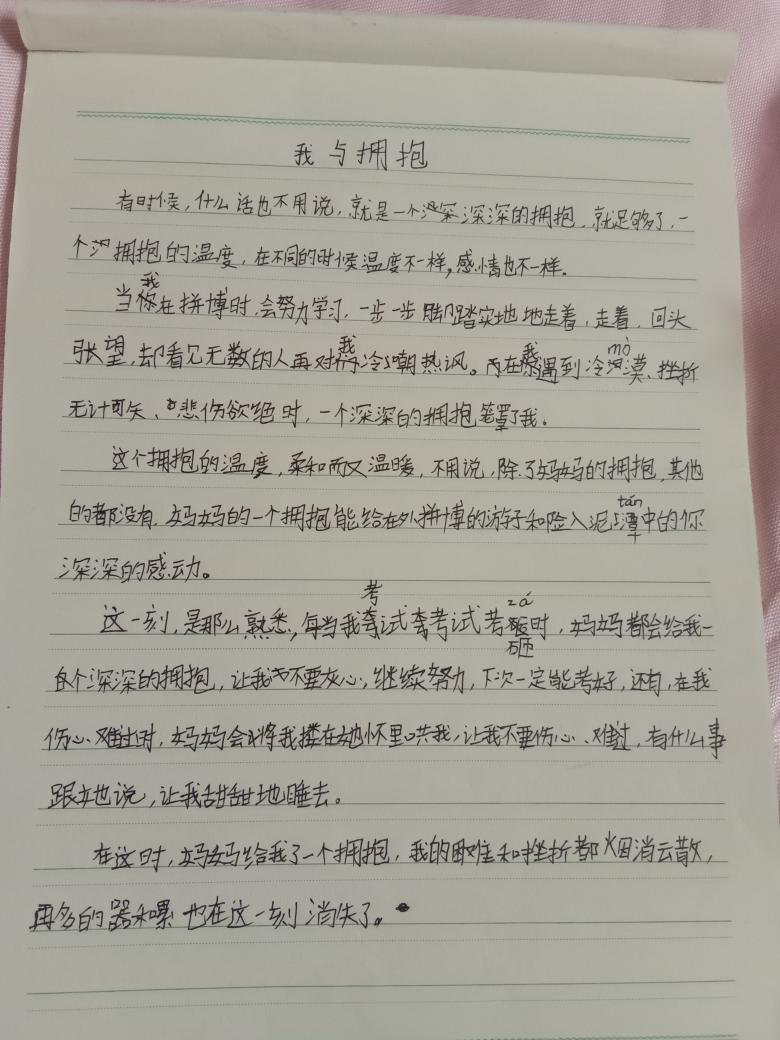 我与拥抱
有时候，什么话也不用说，就是一个深深深的拥抱，就足够了，一
个拥抱的温度，在不同的时候温度不一样，感情也不一样。
我
当你在拼博时，会努力学习，一步一步脚踏实地地走着，走着，回头
张望，却看见无数的人再对我冷嘲热讽。而在我遇到冷漠、挫折
mò
无计可矢、悲伤欲绝时，一个深深的拥抱笼罩了我。
这个拥抱的温度，柔和而又温暖，不用说，除了妈妈的拥抱，其他
的都没有，妈妈的一个拥抱能给在外拼博的游子和险入泥潭中的你
tán
深深的感动。
考
这一刻，是那么熟悉，每当我考试考砸时，妈妈都会给我一
zá
砸
个深深的拥抱，让我不要灰心，继续努力，下次一定能考好，还有，在我
伤心、难过时，妈妈会将我搂在她怀里哄我，让我不要伤心、难过，有什么事
跟她说，让我甜甜地睡去。
在这时，妈妈给我了一个拥抱，我的困难和挫折都烟消云散，
再多的嚣和累也在这一刻消失了。